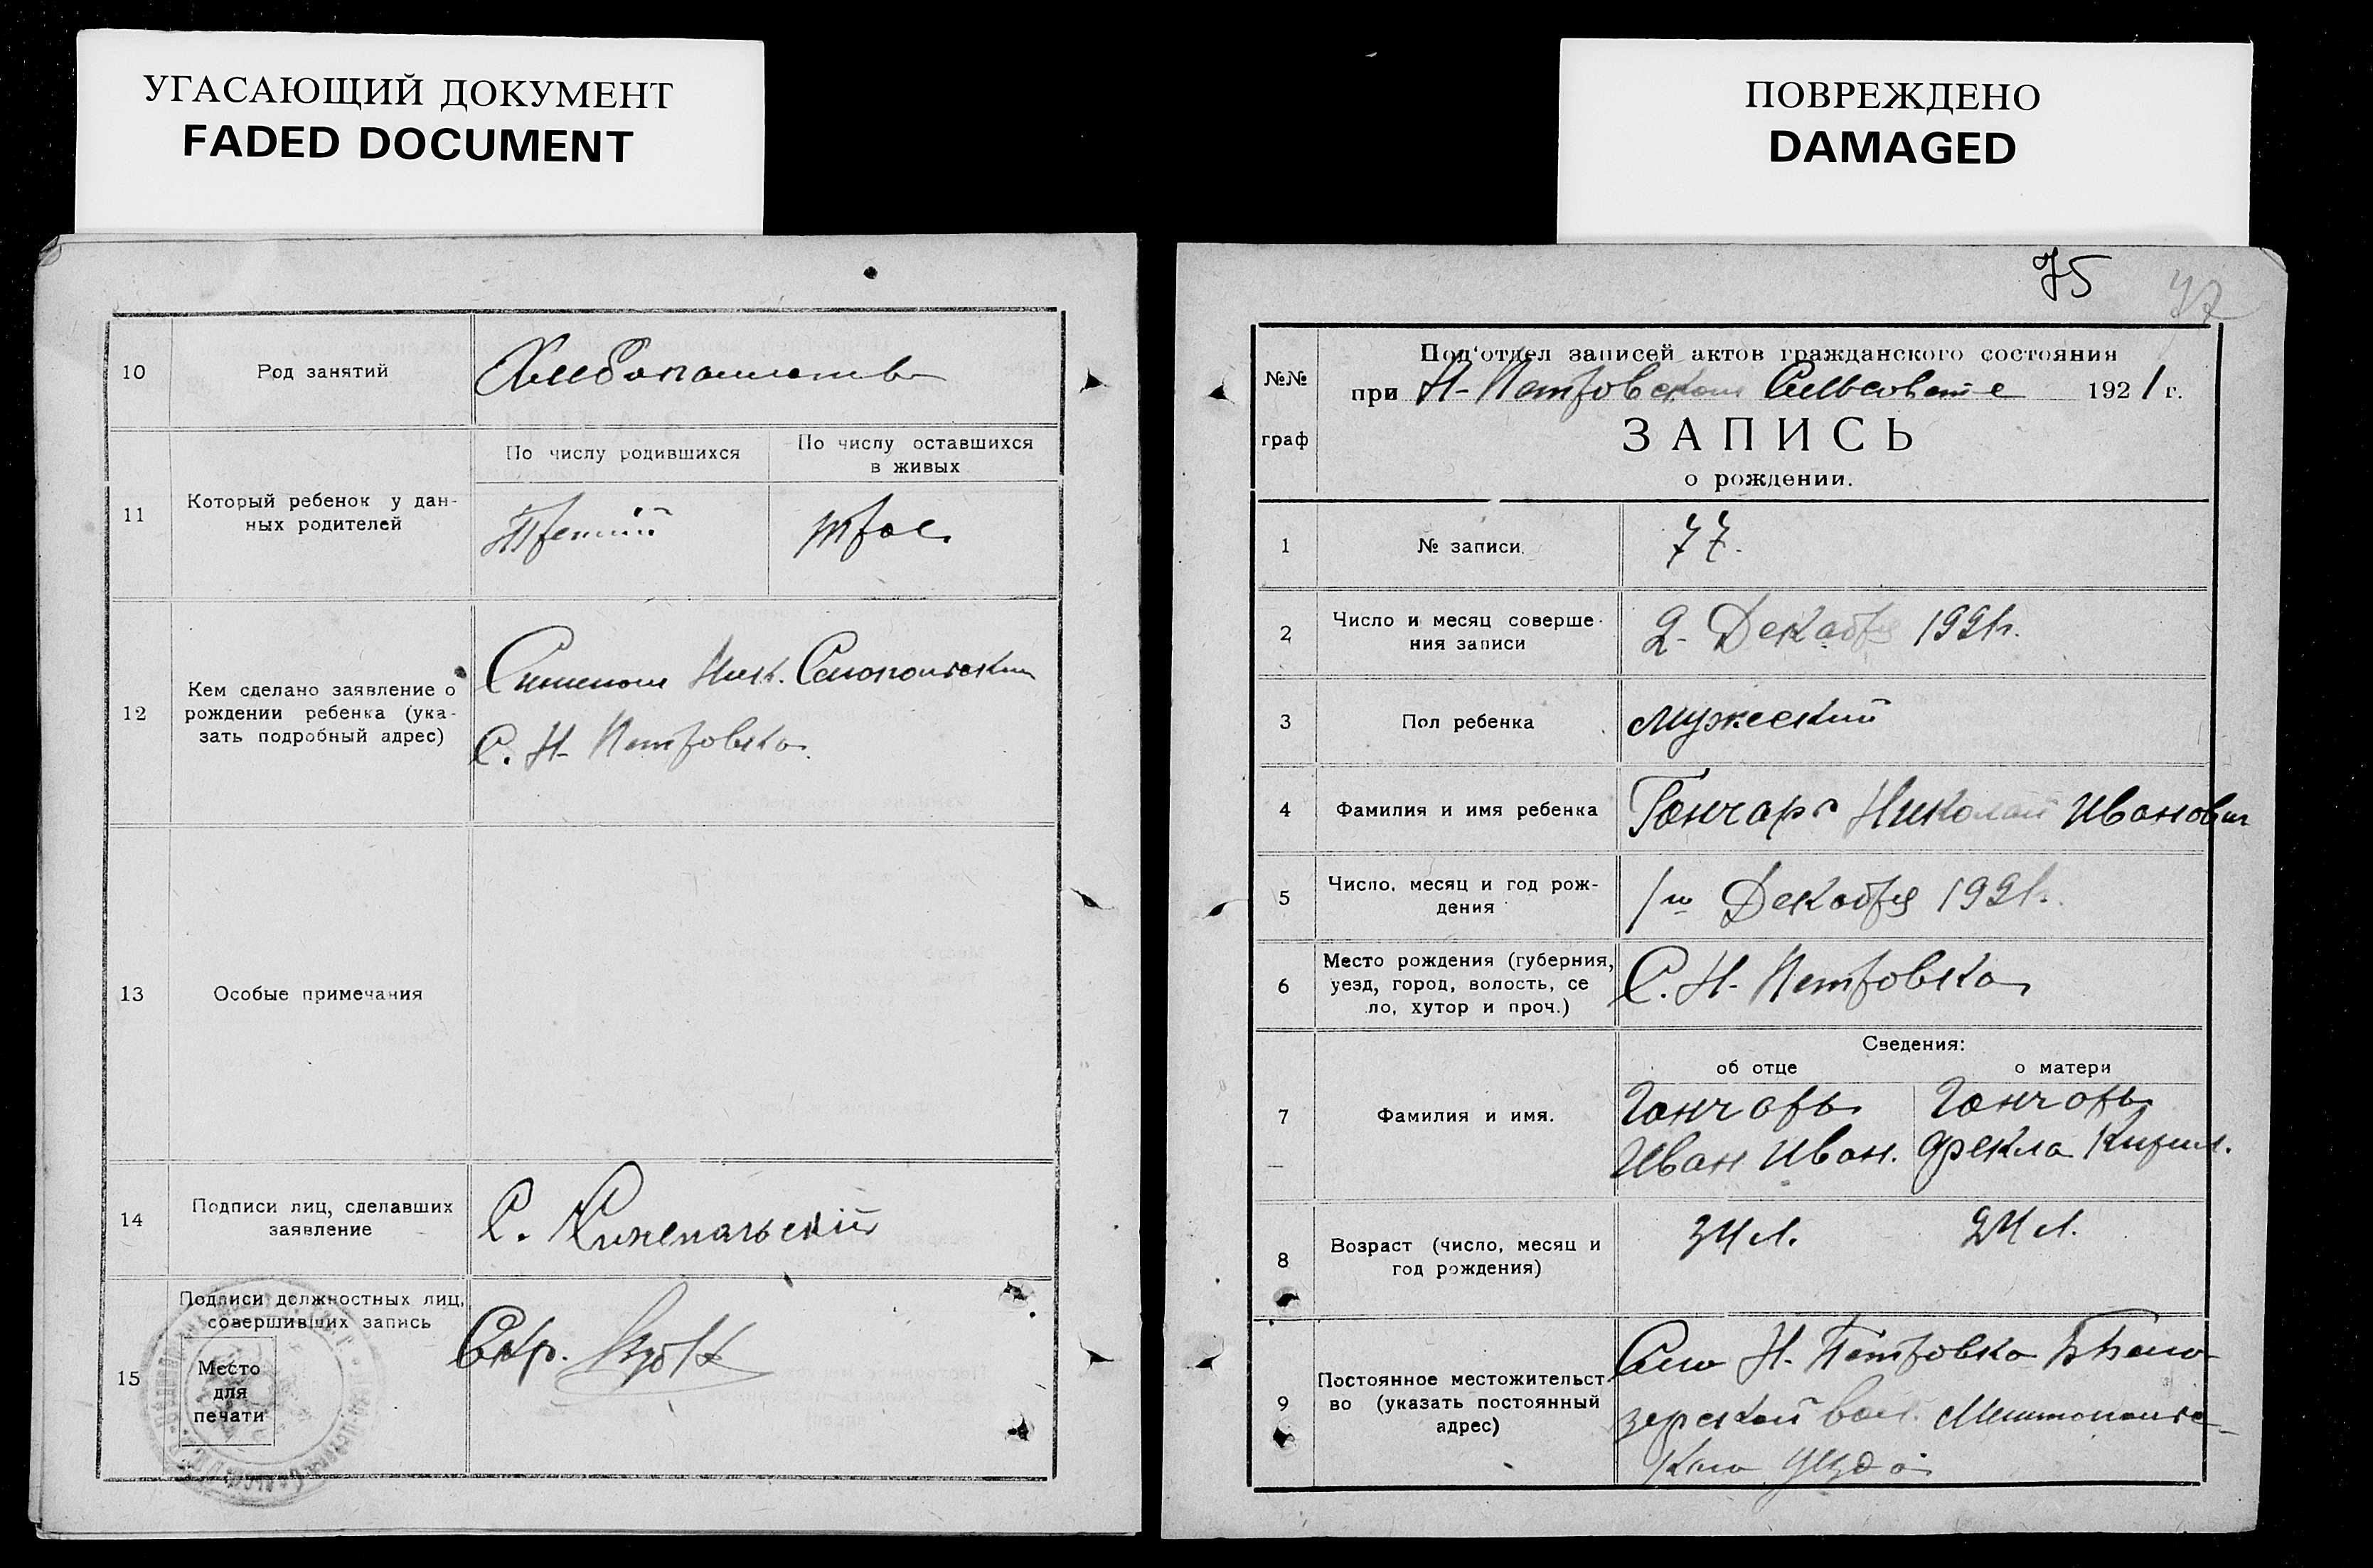 УГАСАЮЩИЙ ДОКУМЕНТ
FADED DOCUMENT
10
Род занятий
Хлебопашество
11
Который ребенок у дан-
ных родителей
По числу родившихся
По числу оставшихся
в живых
Третий
трое
12
Кем сделано заявление о
рождении ребенка (ука-
зать подробный адрес)
Ник.
С. Н-Петровка
13
Особые примечания
14
Подписи лиц, сделавших
заявление
С.
15
Подписи должностных лиц,
совершивших запись
Место
для
печати
Секр.
ПОВРЕЖДЕНО
DAMAGED
75
77
№№
граф
Под'отдел записей актов гражданского состояния
при Н-Петровском Сельсовете 1921 г.
ЗАПИСЬ
о рождении.
1
№ записи.
77.
2
Число и месяц соверше-
ния записи
2- Декабря 1921г.
3
Пол ребенка
Мужеский
4
Фамилия и имя ребенка
Гончарь Николай Иванович
5
Число, месяц и год рож-
дения
1го Декабря 1921г.
6
Место рождения (губерния,
уезд, город, волость, се
ло, хутор и проч.)
С. Н-Петровка
Сведения:
об отце
о матери
7
Фамилия и имя.
Гончарь
Иван Иван.
Гончарь
Фекла Кирил.
8
Возраст (число, месяц и
год рождения)
34 л.
24 л.
9
Постоянное местожительст-
во (указать постоянный
адрес)
Село Н-Петровка
зерской вол. Мелитопольс-
кого уезда